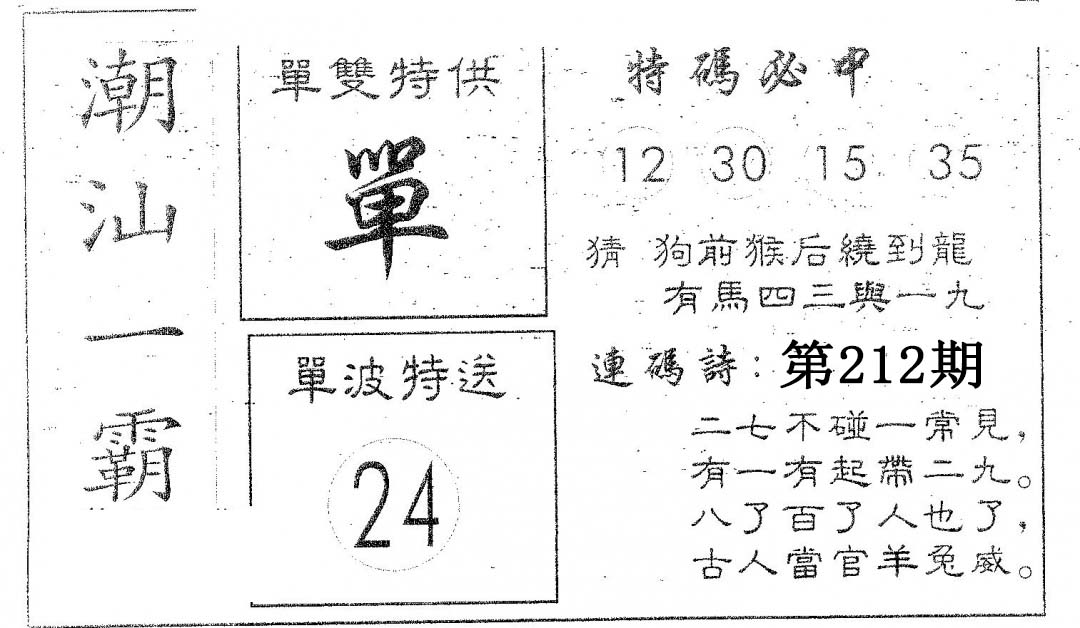 潮汕一霸
單雙特供
單
單波特送
24
特碼必中
12 30 15 35
猜 狗前猴后繞到龍
有馬四三與一九
連碼詩：第212期
二七不碰一常見，
有一有起帶二九。
八了百了人也了，
古人當官羊兔威。